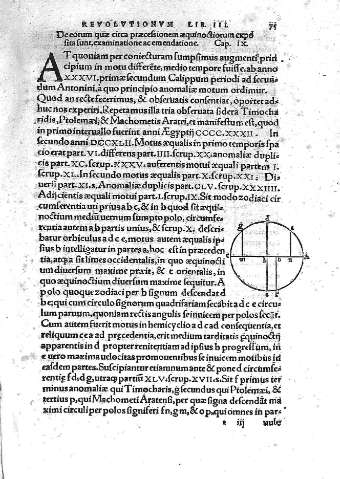 REVOLVTIONVM LIB. III. 75
De eorum quæ circa præcessionem æquinoctiorum expo
sita sunt, examinatione ac emendatione. Cap. IX.
AT quoniam per coniecturam sumpsimus augmenti prin
cipium in motu differēte, medio tempore fuisse, ab anno
XXXVI. primæ secundum Calippum periodi ad secūdum
Antonini, à quo principio anomaliæ motum ordimur.
Quod an recte fecerimus, & obseruatis consentiat, oportet adhuc
nos experiri. Repetamus illa tria obseruata sidera Timocha
ridis, Ptolemæi, & Machometis Arateñ, et manifestum est, quod
in primo interuallo fuerint anni Ægyptij CCCCXXXII. In
secundo anni DCCXLII. Motus æqualis in primo temporis spa
cio erat part. VI. differens part. IIII. scrup. XX. anomaliæ dupli
cis part. XC. scrup. XXXV. auferentis motui æquali partem I.
scrup. XL. In secundo motus æqualis part. X. scrup. XXI. Di
uersi part. XI. s. Anomaliæ duplicis part. CLV. scrup. XXXIIII.
Adijcientis æquali motui part. I. scrup. IX. Sit modo zodiaci cir
cumferentia uti prius a b c, & in b quod sit æqui-
noctium mediū uernum sumpto polo, circumfe-
rentia autem a b partis unius, & scrup. X. descri
batur orbiculus a d c e, motus autem æqualis ip
sius b intelligatur in partes a, hoc est in præceden
tia, atque a sit limes occidentalis, in quo æquinocti
um diuersum maxime præit, & c orientalis, in
quo æquinoctium diuersum maxime sequitur. A
polo quoque zodiaci per b signum descendat d
b e, qui cum circulo signorum quadrifariam secabit a d c e circu
lum paruum, quoniam rectis angulis se inuicem per polos secāt.
Cum autem fuerit motus in hemicyclio a d c ad consequentia, et
reliquum c e a ad præcedentia, erit medium tarditatis æquinoctij
apparentis in d propter renitentiam ad ipsius b progressum, in
e uero maxima uelocitas promouentibus se inuicem motibus ad
easdem partes. Suscipiantur etiamnum ante & pone d circumfe-
rentiæ f d, d g, utraque partium XLV. scrup. XVII. s. Sit f primus ter
minus anomaliæ qui Timocharis, g secundus qui Ptolemæi, &
tertius p, qui Machometi Aratensis, per quæ signa descendāt ma
ximi circuli per polos signiferi f n, g m, & o p, qui omnes in par-
t iij uulo